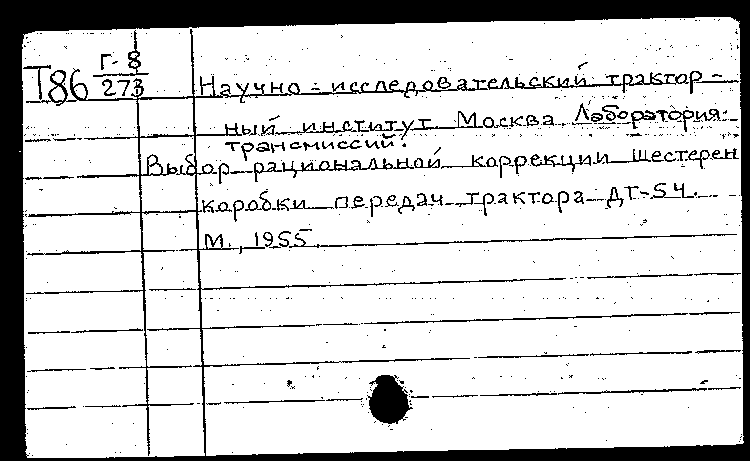 Т86 Г-8/273
Научно-исследовательский трактор-
ный институт Москва. Лаборатория
трансмиссий.
Выбор рациональной коррекции шестерен
коробки передач трактора ДТ-54.
М., 1955.